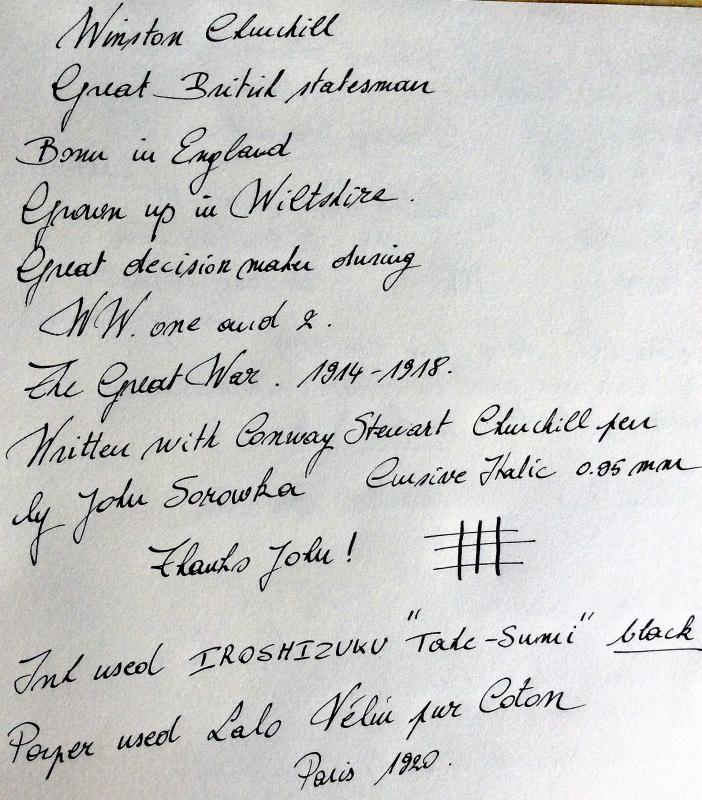 Winston Churchill
Great British statesman
Born in England
Grown up in Wiltshire.
Great decision maker during
WW. one and 2.
The Great War. 1914-1918.
Written with Conway Stewart Churchill pen
by John Sorowka Cursive Italic 0.95 mm
Thanks John!
Ink used IROSHIZUKU "Take-Sumi" black
Paper used Lalo Vélin pur Coton
Paris 1920.